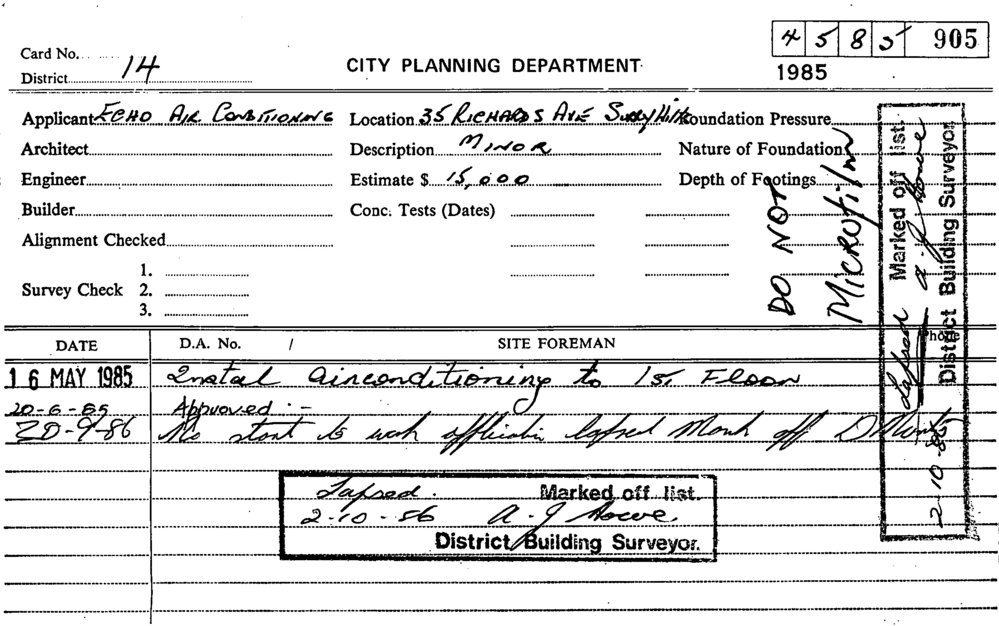 4 5 8 5 905
Card No.
District 14
CITY PLANNING DEPARTMENT
1985
Applicant ECHO AIR CONDITIONING Location 35 RICHARDS AVE Surry Hills Foundation Pressure
Architect Description MINOR Nature of Foundation
Engineer Estimate $ 15,000 Depth of Footings
Builder Conc. Tests (Dates)
Alignment Checked
1.
Survey Check 2.
3.
DO NOT
Microfilm
Lapsed Marked off list.
2-10-86 District Building Surveyor.
DATE D.A. No. / SITE FOREMAN Phone
16 MAY 1985 Instal airconditioning to 1st Floor
20-6-85 Approved :-
20-9-86 No start to work application lapsed Mark off
Lapsed. Marked off list.
2-10-86 A. J Howe.
District Building Surveyor.